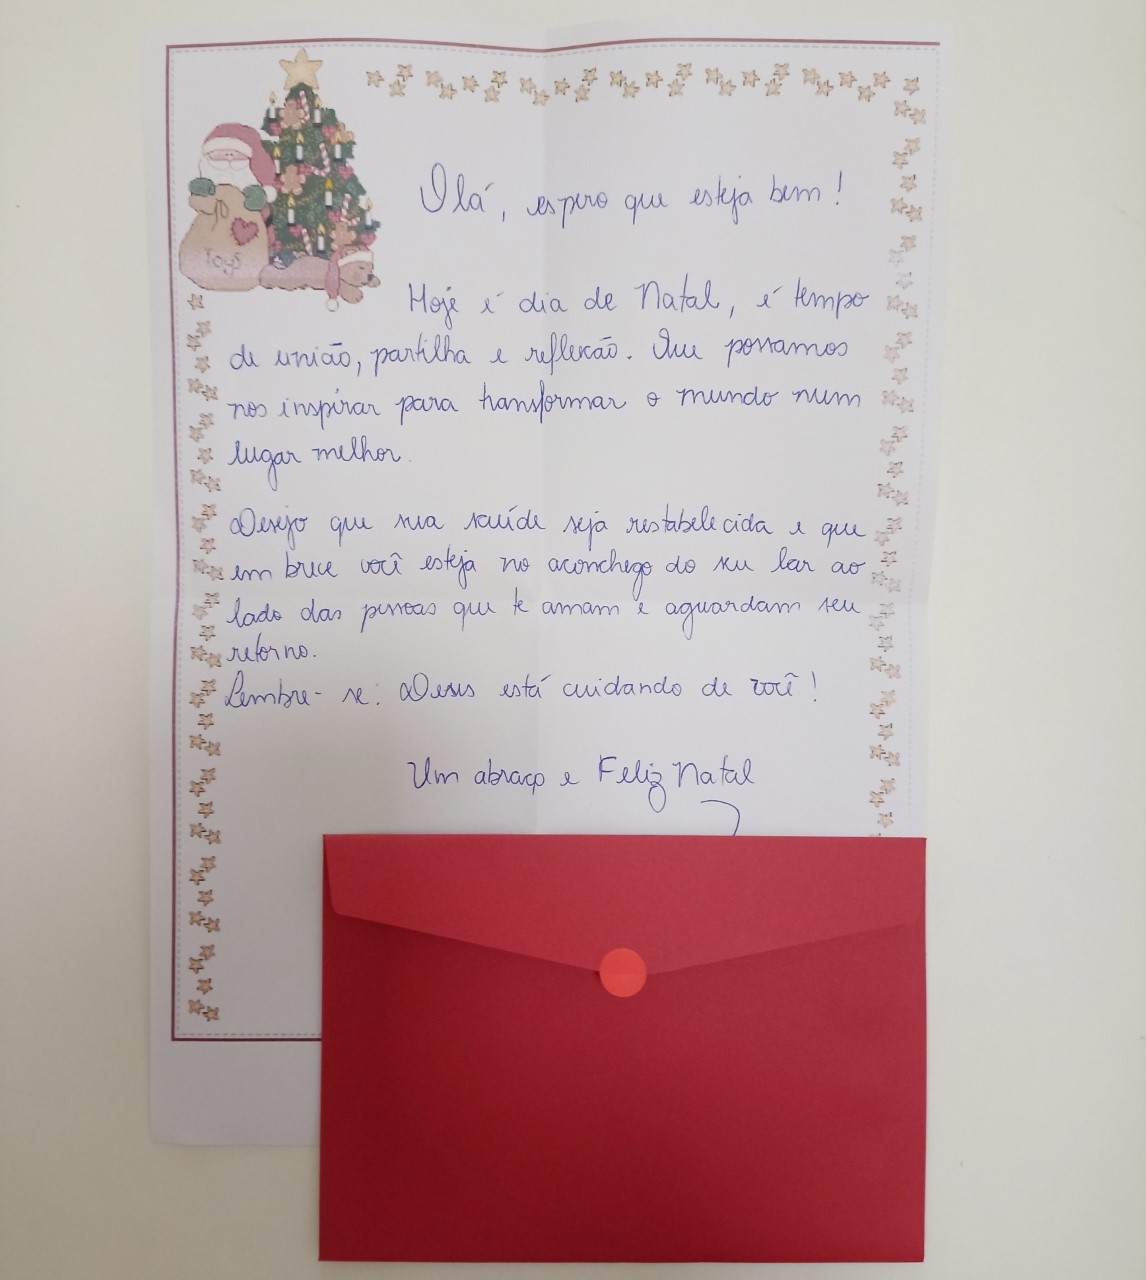 Toys
Olá, espero que esteja bem!
Hoje é dia de Natal, é tempo
de união, partilha e reflexão. Que possamos
nos inspirar para transformar o mundo num
lugar melhor.
Desejo que sua saúde seja restabelecida e que
em breve você esteja no aconchego do seu lar ao
lado das pessoas que te amam e aguardam seu
retorno.
Lembre-se: Deus está cuidando de você!
Um abraço e Feliz Natal